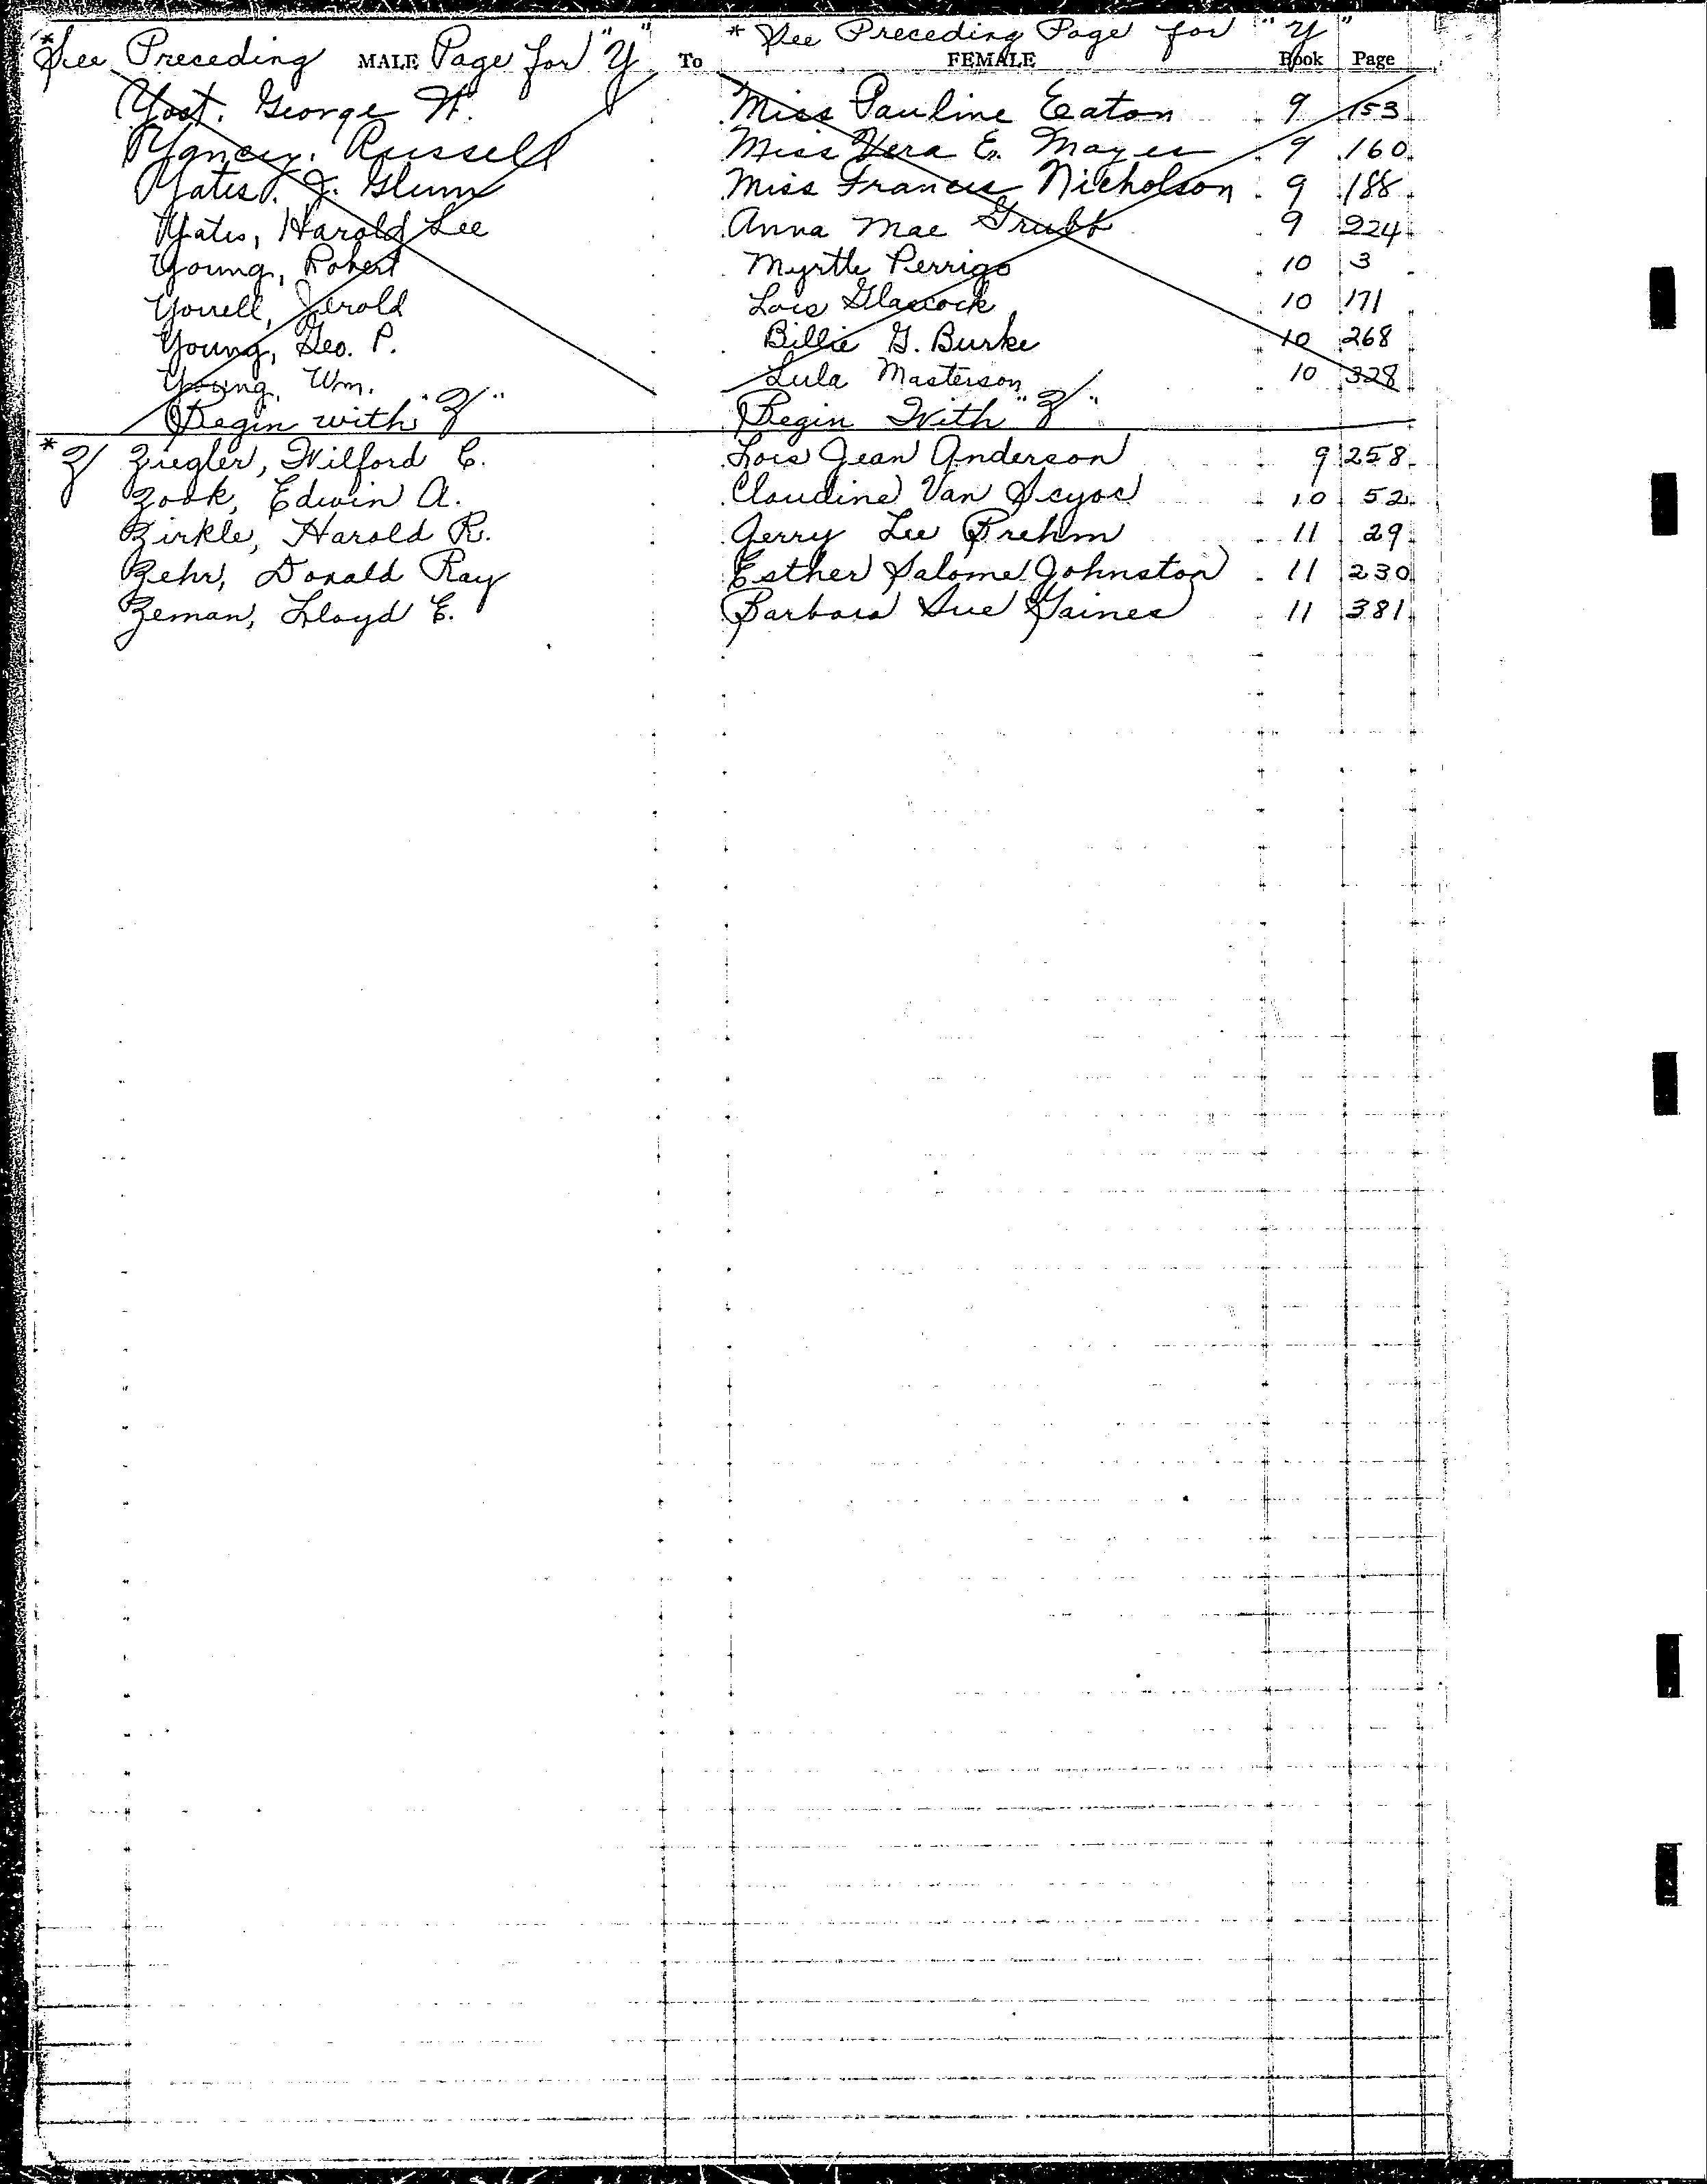 * See Preceding Page for "Y" * See Preceding Page for "Y"
MALE To FEMALE Book Page
Yost. George W. Miss Pauline Eaton 9 153
Yancey. Russell Miss Vera E. Mayes 9 160
Yates. J. Glenn Miss Frances Nicholson 9 188
Yates, Harold Lee Anna Mae Grubb 9 224
Young, Robert Myrtle Perrigo 10 3
Yowell, Jerold Lois Glascock 10 171
Young, Geo. P. Billie G. Burke 10 268
Young, Wm. Lula Masterson 10 328
Begin with "Z" Begin With "Z"
* Z Ziegler, Wilford C. Lois Jean Anderson 9 258
Zook, Edwin A. Claudine Van Scyoc 10 52
Zirkle, Harold R. Jerry Lee Brehm 11 29
Zehr, Donald Ray Esther Salome Johnston 11 230
Zeman, Lloyd E. Barbara Sue Gaines 11 381